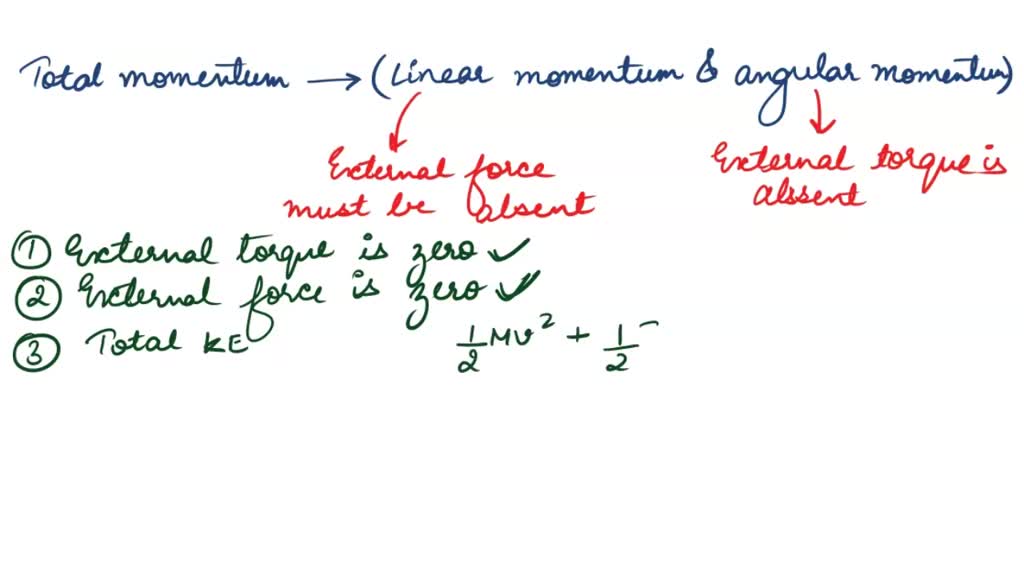 Total momentum → (Linear momentum & angular momentum)
External force
must be absent
External torque is
alssent
① External torque is zero ✓
② External force is zero ✓
③ Total KE 1/2 Mv² + 1/2